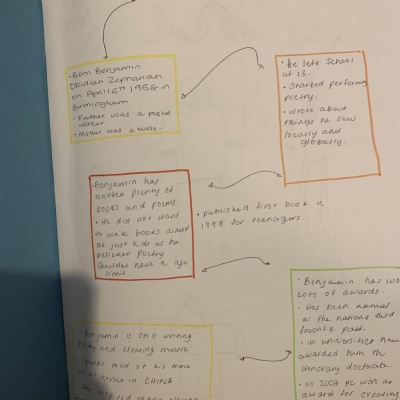 • Born Benjamin
Obidian Zephaniah
on April 15th 1958 in
Birmingham
- Father was a postal
worker
- Mother was a nurse.
• He left School
at 13.
• Started performing
poetry.
• wrote about
things he saw
locally and
globally.
Benjamin has
written plenty of
books and poems
• He did not want
to write books aimed
at just kids as he
believed poetry
shouldnt have a age
limit.
• published first book in
1999 for teenagers.
• Benjamin has wo
Lots of awards.
• Has been named
as the nations third
favorite poet.
• 16 universities have
awarded him the
Honorary doctorate.
• In 2008 He won an
award for creating
• Benjamin is still writing
and creating music
• Spends most of his time
at his home in CHINA.
• He